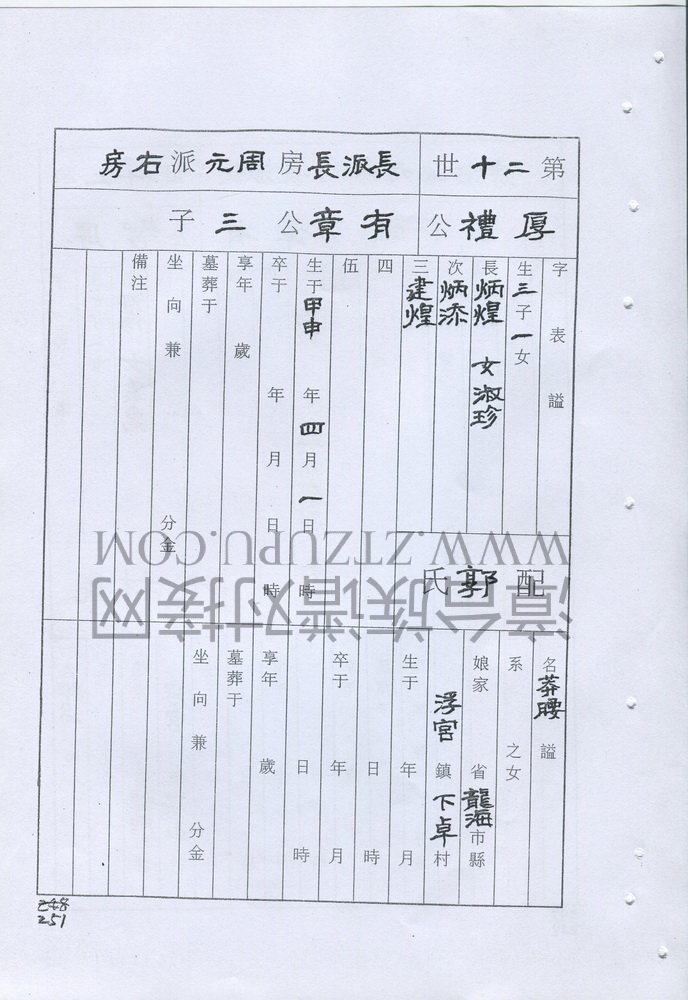 第二十世
長派長房周元派右房
厚禮公
有章公三子
字表謚
生三子一女
長炳煌 女淑珍
次炳添
三建煌
四
伍
生于甲申年四月一日時
卒于年月日時
享年歲
墓葬于
坐向兼分金
備注
配郭氏
名莽腰謚
系之女
娘家省龍海市縣
浮宮鎮下卓村
生于年月
日時
卒于年月
日時
享年歲
墓葬于
坐向兼分金
WWW.ZTZUPU.COM
漳台族谱对接网
248
251